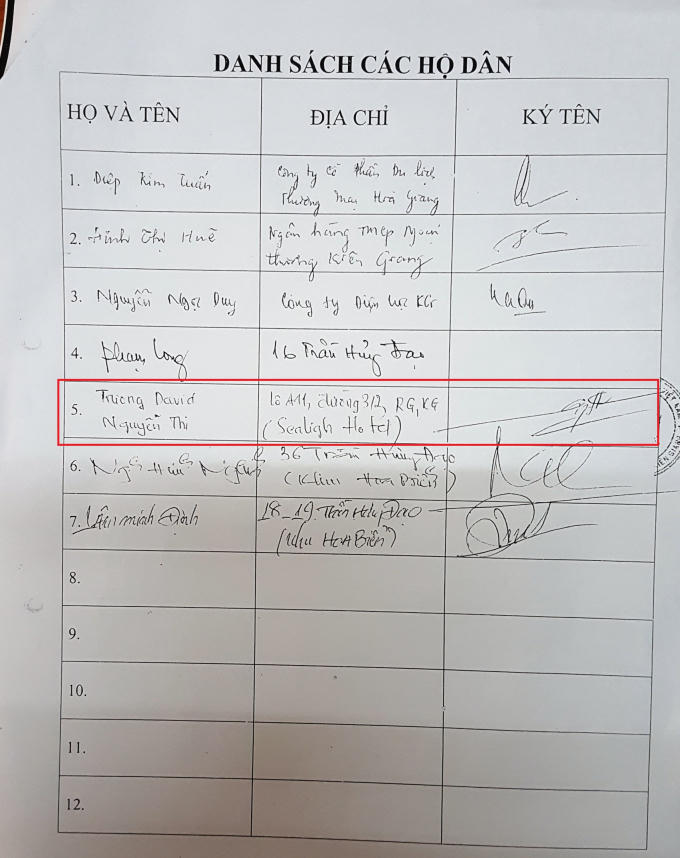 DANH SÁCH CÁC HỘ DÂN
HỌ VÀ TÊN ĐỊA CHỈ KÝ TÊN
1. Diệp Kim Tuấn
Công ty Cổ phần Du lịch
Thương mại Hoà Giang
2. Huỳnh Thị Huê
Ngân hàng TMCP Ngoại
thương Kiên Giang
3. Nguyễn Ngọc Duy Công ty Điện lực KG
4. Phạm Long 16 Trần Hưng Đạo
5. Trương David
Nguyễn Thi
Lô A11, đường 3/2, RG, KG
(Sealigh Hotel)
6. 36 Trần Hưng Đạo
(Khu Hoa Biển)
7. Minh Định
18-19 Trần Hưng Đạo
(Khu Hoa Biển)
8.
9.
10.
11.
12.